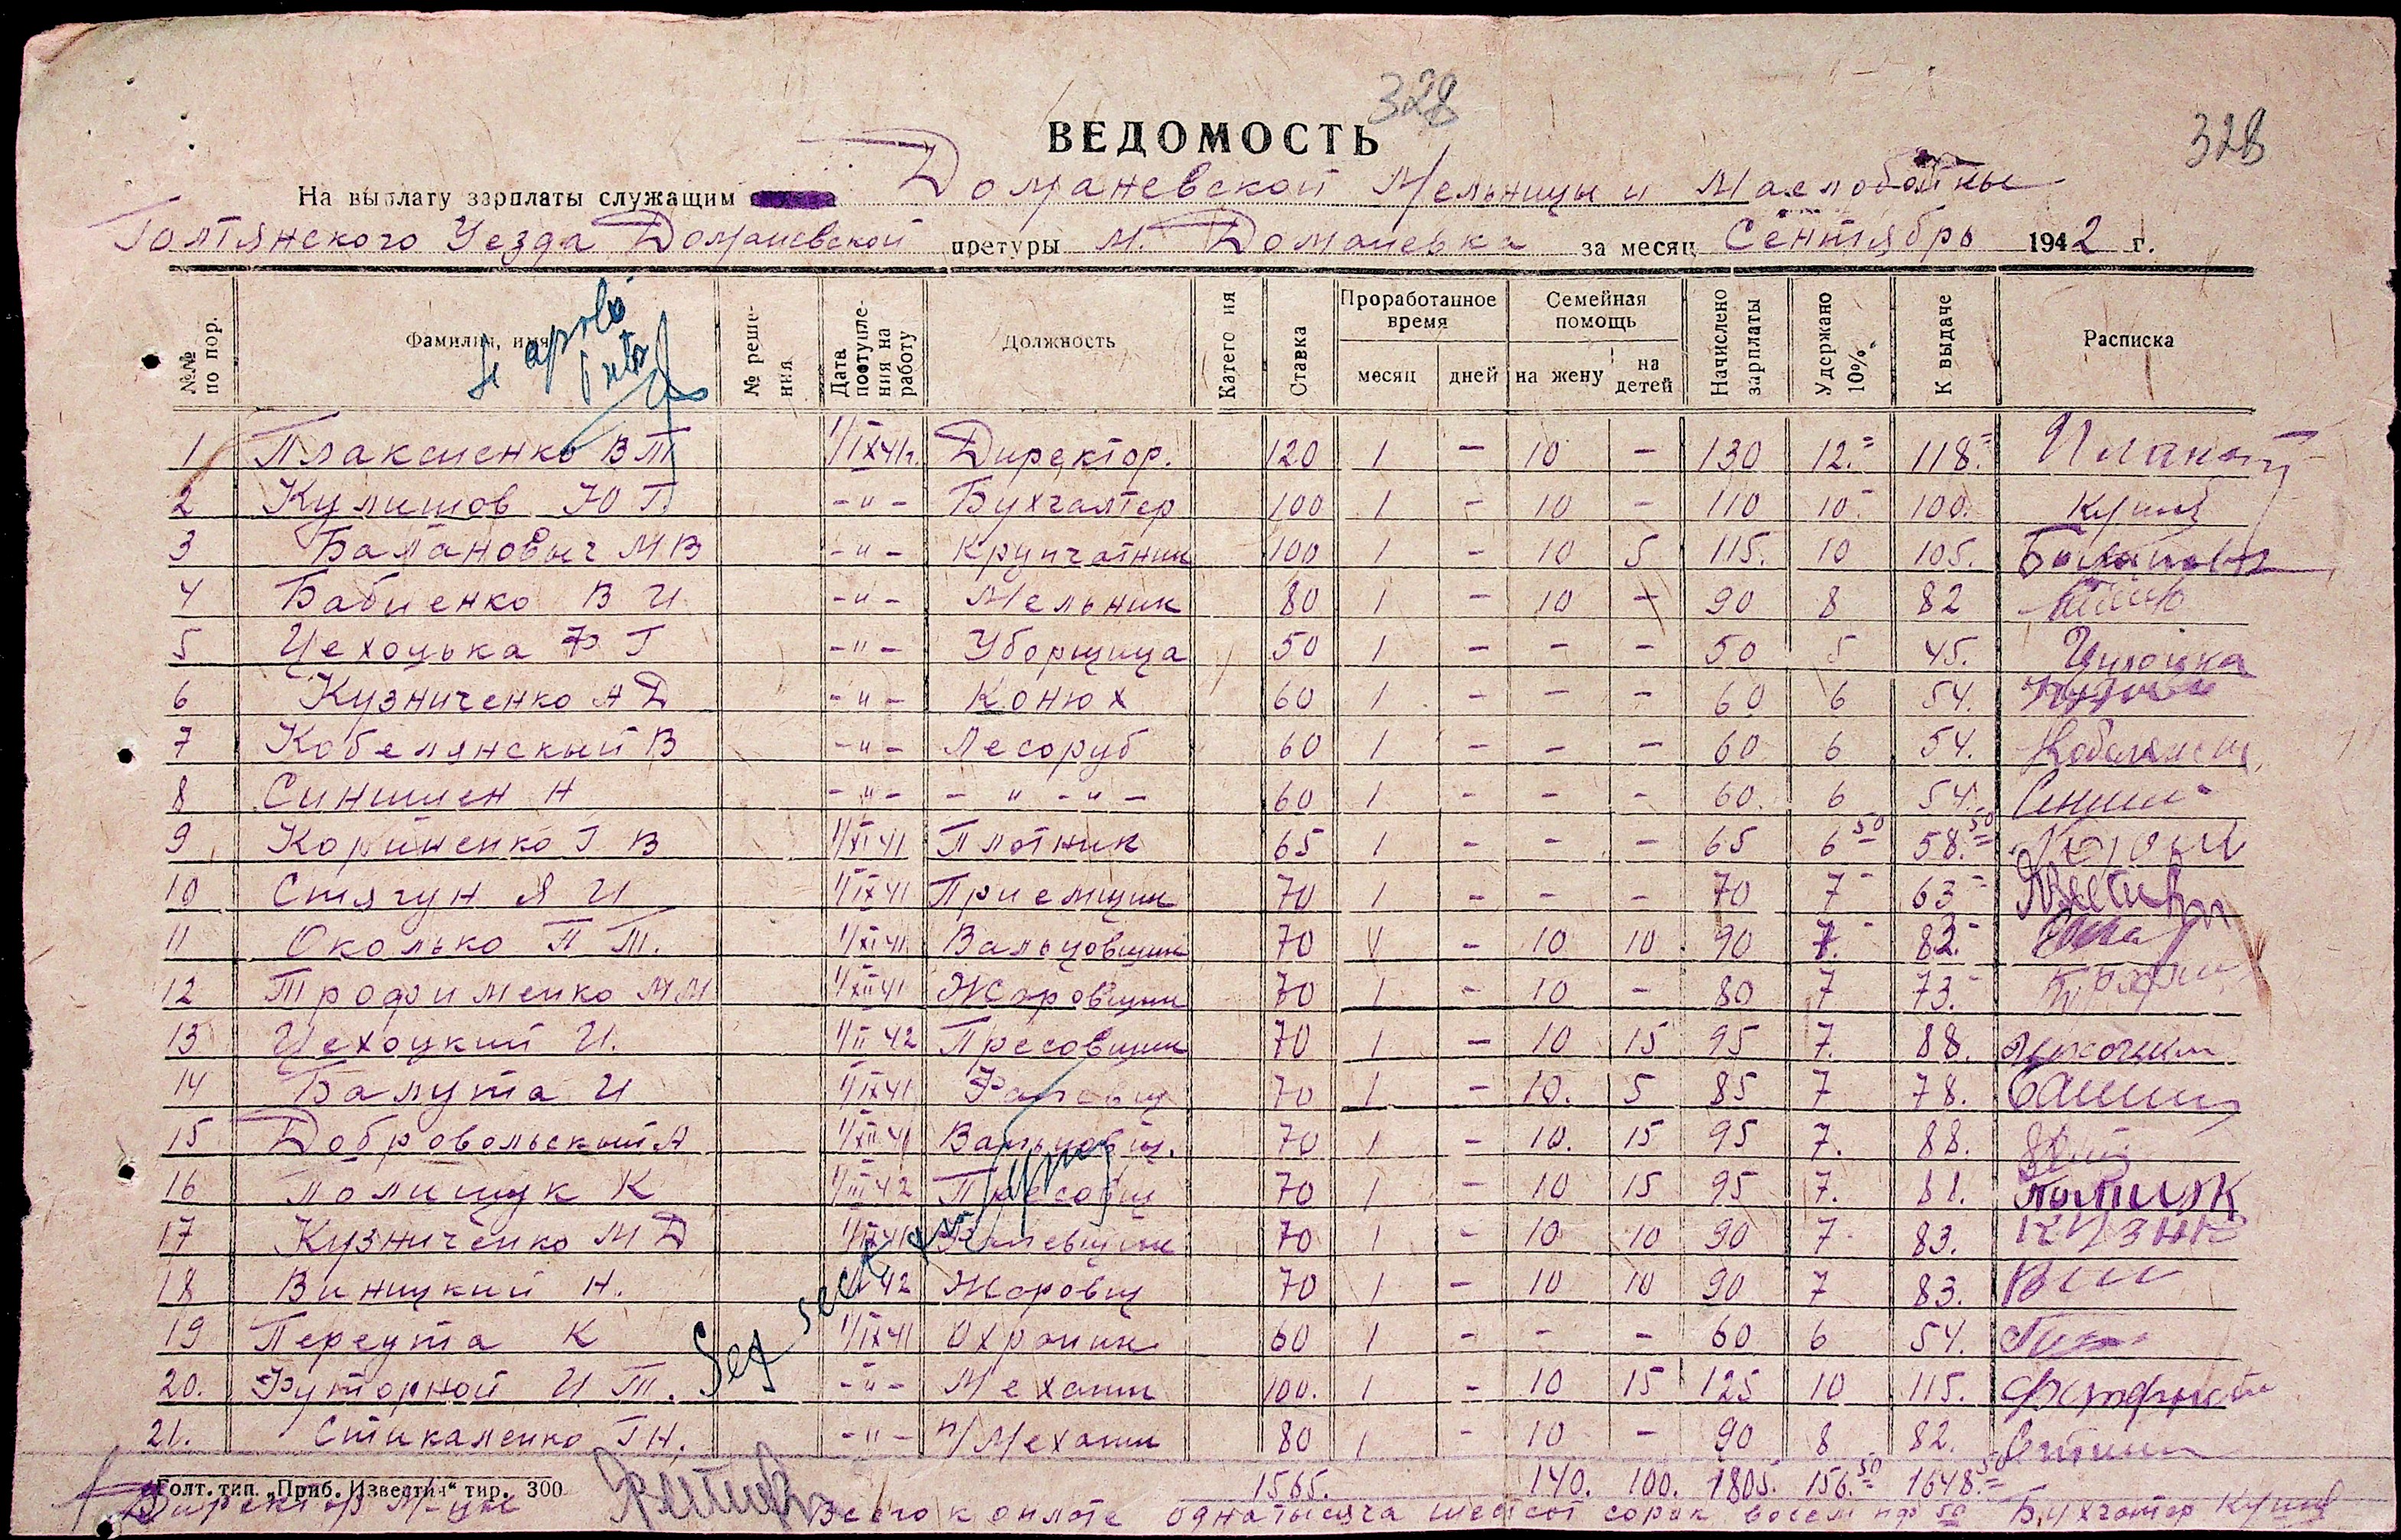 328
328
ВЕДОМОСТЬ
На выплату зарплаты служащим Доманевской Мельницы и Маслобойны
Голтянского Уезда Доманевской претуры м. Доманевка за месяц Сентябрь 1942 г.
№№ по пор. Фамилия, имя № реше-ния Дата поступле-ния на работу Должность Катего ия Ставка Проработанное время Семейная помощь Начислено зарплаты Удержано 10% К выдаче Расписка
месяц дней на жену на детей
Se aprobă
1 Плаксиенко В П 1/IX 41г. Директор. 120 1 – 10 – 130 12.= 118.=
2 Кулишов Ю Г -"- Бухгалтер 100 1 – 10 – 110 10- 100.
3 Балановыч М В -"- Крупчатник 100 1 – 10 5 115. 10 105.
4 Бабиенко В И -"- Мельник 80 1 – 10 – 90 8 82
5 Цехоцька Ф Г -"- Уборщица 50 1 – – – 50 5 45.
6 Кузниченко А Д -"- Конюх 60 1 – – – 60 6 54.
7 Кобелянскый В -"- Лесоруб 60 1 – – – 60 6 54. Кобелянск
8 Синишен Н -"- -"-"- 60 1 – – – 60. 6 54.
9 Кориненко Г В 1/XI 41 Плотник 65 1 – – – 65 6 50 58. 50
10 Стягун Я И 1/IX 41 Приемщик 70 1 – – – 70 7- 63-
11 Околько П Т. 1/XI 41. Вальцовщик 70 1 – 10 10 90 7.- 83.-
12 Трофименко М М 1/XII 41 Жаровщик 70 1 – 10 – 80 7 73.-
13 Цехоцкий И. 1/II 42 Пресовщик 70 1 – 10 15 95 7. 88.
14 Балута И 1/IX 41 70 1 – 10. 5 85 7 78.
15 Добровольскый А 1/XII 41 Вальцовщ. 70 1 – 10. 15 95 7. 88.
16 Полищук К 1/III 42 Пресовщ 70 1 – 10 15 95 7. 81.
17 Кузниченко М Д 70 1 – 10 10 90 7 83. Кузне
18 Виницкий Н. 42 Жаровщ 70 1 – 10 10 90 7 83.
19 Переута К 1/IX 41 Охраник 60 1 – – – 60 6 54.
20. Футорной И Т. -"- Механик 100. 1 – 10 15 125 10 115.
21. Стикаленко Г Н. -"- п/Механик 80 1 – 10 – 90 8 82.
1565. 140. 100. 1805. 156. 50 1648. 50
Голт. тип. „Приб. Известия“ тир. 300
Директор М-цы Всего к оплате одна тысяча шестсот сорок восем 50 Бухгалтер